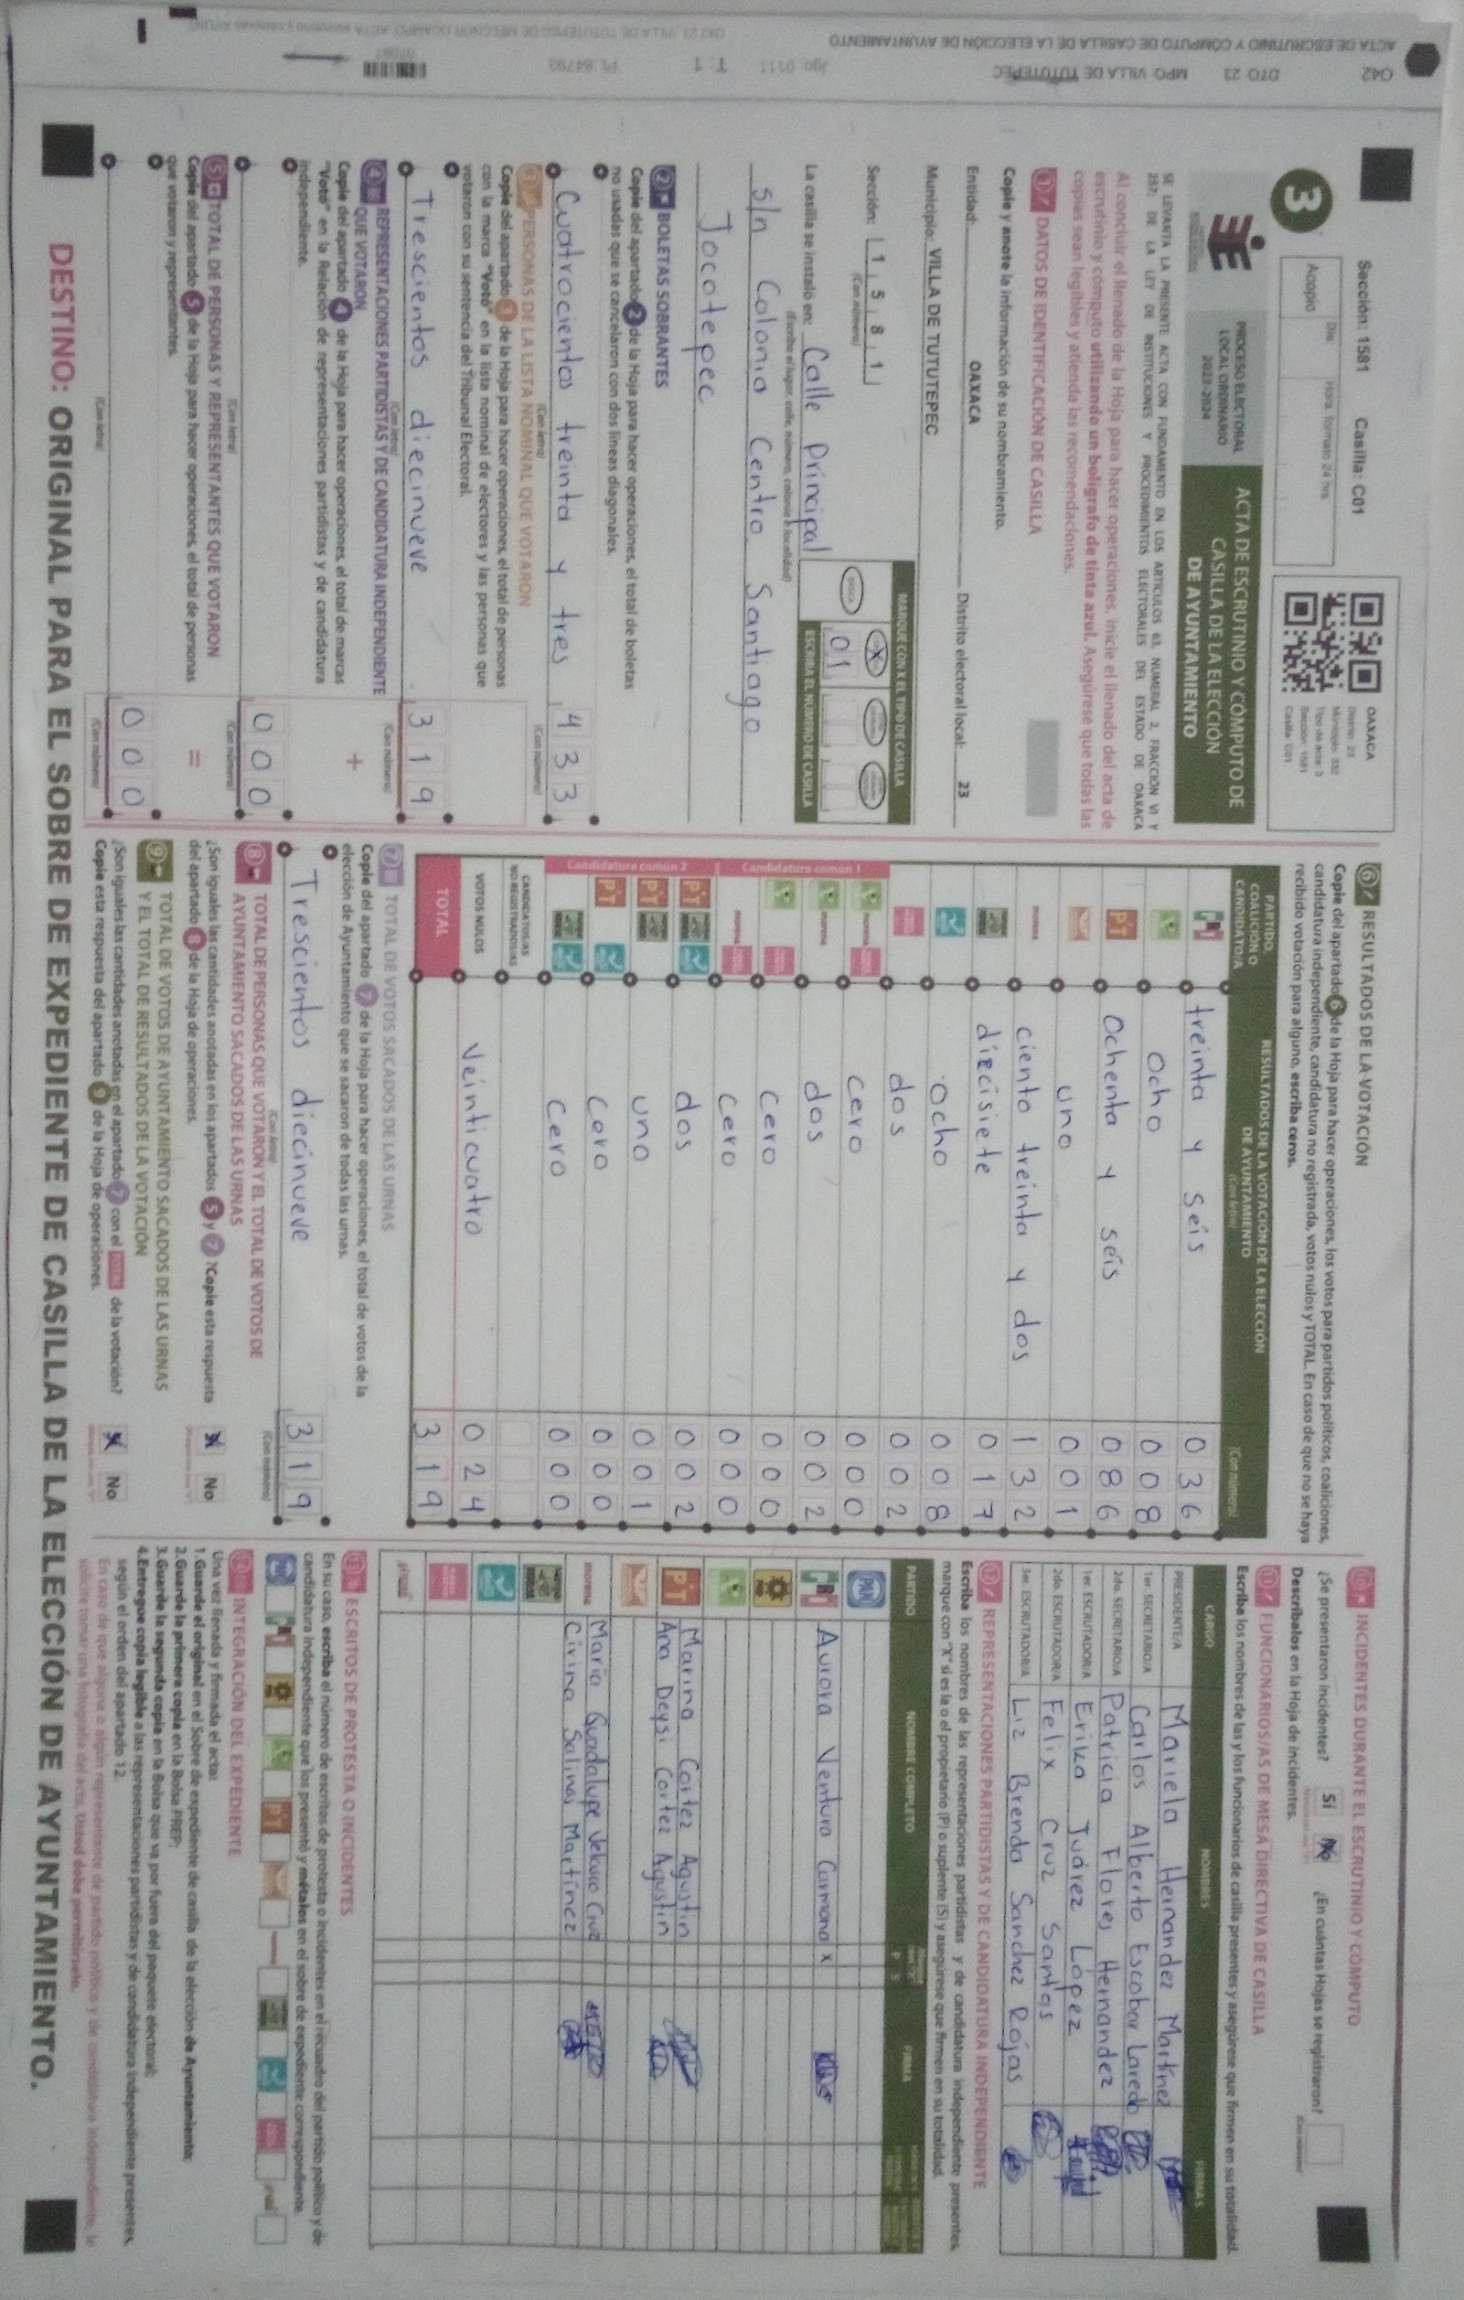 Q42 DTO 23 MPO: VILLA DE TUTUTEPEC
ACTA DE ESCRUTINIO Y CÓMPUTO DE CASILLA DE LA ELECCIÓN DE AYUNTAMIENTO
Sección: 1581 Casilla: C01
3
Acopio
Día
Hora: formato 24 hrs.
OAXACA
Distrito: 23
Municipio: 332
Tipo de acta: 3
Sección: 1581
Casilla: C01
PROCESO ELECTORAL
LOCAL ORDINARIO
2023-2024
ACTA DE ESCRUTINIO Y CÓMPUTO DE
CASILLA DE LA ELECCIÓN
DE AYUNTAMIENTO
SE LEVANTA LA PRESENTE ACTA CON FUNDAMENTO EN LOS ARTÍCULOS 63, NUMERAL 2, FRACCIÓN VI Y
257; DE LA LEY DE INSTITUCIONES Y PROCEDIMIENTOS ELECTORALES DEL ESTADO DE OAXACA
Al concluir el llenado de la Hoja para hacer operaciones, inicie el llenado del acta de
escrutinio y cómputo utilizando un bolígrafo de tinta azul. Asegúrese que todas las
copias sean legibles y atienda las recomendaciones.
1 DATOS DE IDENTIFICACIÓN DE CASILLA
Copie y anote la información de su nombramiento.
Entidad: OAXACA Distrito electoral local: 23
Municipio: VILLA DE TUTUTEPEC
Sección: 1 5 8 1
(Con número)
MARQUE CON X EL TIPO DE CASILLA
X
ESCRIBA EL NÚMERO DE CASILLA
01
La casilla se instaló en: Calle principal
(Escriba el lugar, calle, número, colonia o localidad)
s/n Colonia Centro Santiago
Jocotepec
2 BOLETAS SOBRANTES
Copie del apartado 2 de la Hoja para hacer operaciones, el total de boletas
no usadas que se cancelaron con dos líneas diagonales.
Cuatrocientos treinta y tres 433
(Con letra) (Con número)
3 PERSONAS DE LA LISTA NOMINAL QUE VOTARON
Copie del apartado 3 de la Hoja para hacer operaciones, el total de personas
con la marca "Votó" en la lista nominal de electores y las personas que
votaron con su sentencia del Tribunal Electoral.
Trescientos diecinueve 319
(Con letra) (Con número)
4 REPRESENTACIONES PARTIDISTAS Y DE CANDIDATURA INDEPENDIENTE
QUE VOTARON
Copie del apartado 4 de la Hoja para hacer operaciones, el total de marcas
"Votó" en la Relación de representaciones partidistas y de candidatura
independiente.
+
000
(Con letra) (Con número)
5 TOTAL DE PERSONAS Y REPRESENTANTES QUE VOTARON
Copie del apartado 5 de la Hoja para hacer operaciones, el total de personas
que votaron y representantes.
=
000
(Con letra) (Con número)
6 RESULTADOS DE LA VOTACIÓN
Copie del apartado 6 de la Hoja para hacer operaciones, los votos para partidos políticos, coaliciones,
candidatura independiente, candidatura no registrada, votos nulos y TOTAL. En caso de que no se haya
recibido votación para alguno, escriba ceros.
PARTIDO, COALICIÓN O CANDIDATO/A
RESULTADOS DE LA VOTACIÓN DE LA ELECCIÓN DE AYUNTAMIENTO
(Con letra) (Con número)
PRI treinta y seis 036
ocho 008
PT ochenta y seis 086
uno 001
morena ciento treinta y dos 132
diecisiete 017
ocho 008
dos 002
Candidatura común 1
cero 000
dos 002
cero 000
cero 000
Candidatura común 2
dos 002
uno 001
cero 000
cero 000
CANDIDATOS/AS NO REGISTRADOS/AS
VOTOS NULOS veinticuatro 024
TOTAL 319
7 TOTAL DE VOTOS SACADOS DE LAS URNAS
Copie del apartado 7 de la Hoja para hacer operaciones, el total de votos de la
elección de Ayuntamiento que se sacaron de todas las urnas.
Trescientos diecinueve 319
(Con letra) (Con número)
8 TOTAL DE PERSONAS QUE VOTARON Y EL TOTAL DE VOTOS DE
AYUNTAMIENTO SACADOS DE LAS URNAS
¿Son iguales las cantidades anotadas en los apartados 5 y 7? Copie esta respuesta
del apartado 8 de la Hoja de operaciones.
No
9 TOTAL DE VOTOS DE AYUNTAMIENTO SACADOS DE LAS URNAS
Y EL TOTAL DE RESULTADOS DE LA VOTACIÓN
¿Son iguales las cantidades anotadas en el apartado 7 con el TOTAL de la votación?
Copie esta respuesta del apartado 9 de la Hoja de operaciones.
No
10 INCIDENTES DURANTE EL ESCRUTINIO Y CÓMPUTO
¿Se presentaron incidentes? Sí No ¿En cuántas Hojas se registraron?
Descríbalos en la Hoja de incidentes.
11 FUNCIONARIOS/AS DE MESA DIRECTIVA DE CASILLA
Escriba los nombres de las y los funcionarios de casilla presentes y asegúrese que firmen en su totalidad.
CARGO NOMBRES FIRMAS
PRESIDENTE/A Mariela Hernandez Martinez
1er. SECRETARIO/A Carlos Alberto Escobar Laredo
2do. SECRETARIO/A Patricia Flores Hernandez
1er. ESCRUTADOR/A Erika Juárez López
2do. ESCRUTADOR/A Felix Cruz Santos
3er. ESCRUTADOR/A Liz Brenda Sanchez Rojas
12 REPRESENTACIONES PARTIDISTAS Y DE CANDIDATURA INDEPENDIENTE
Escriba los nombres de las representaciones partidistas y de candidatura independiente presentes,
marque con "X" si es la o el propietario (P) o suplente (S) y asegúrese que firmen en su totalidad.
PARTIDO NOMBRE COMPLETO P S FIRMA
PAN
PRI Aurora Ventura Carmona x
PRD
PT Marina Cortez Agustin
Ana Deysi Cortez Agustin
morena Maria Guadalupe Velasco Cruz
Civina Salinas Martínez
13 ESCRITOS DE PROTESTA O INCIDENTES
En su caso, escriba el número de escritos de protesta o incidentes en el recuadro del partido político y de
candidatura independiente que los presentó y métalos en el sobre de expediente correspondiente.
14 INTEGRACIÓN DEL EXPEDIENTE
Una vez llenada y firmada el acta:
1. Guarde el original en el Sobre de expediente de casilla de la elección de Ayuntamiento;
2. Guarde la primera copia en la Bolsa PREP;
3. Guarde la segunda copia en la Bolsa que va por fuera del paquete electoral;
4. Entregue copia legible a las representaciones partidistas y de candidatura independiente presentes,
según el orden del apartado 12.
En caso de que alguna o algún representante de partido político y de candidatura independiente, le
solicite tomar una fotografía del acta, Usted debe permitírselo.
DESTINO: ORIGINAL PARA EL SOBRE DE EXPEDIENTE DE CASILLA DE LA ELECCIÓN DE AYUNTAMIENTO.